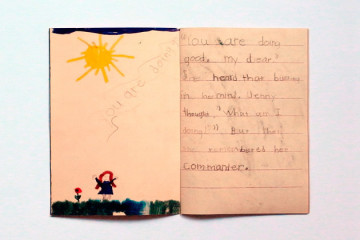 you are doing
"You are doing
good. my dear"
heard that
in her mind. Jenny
thought, "What am I
doing?" But then
she remembered her
commander.